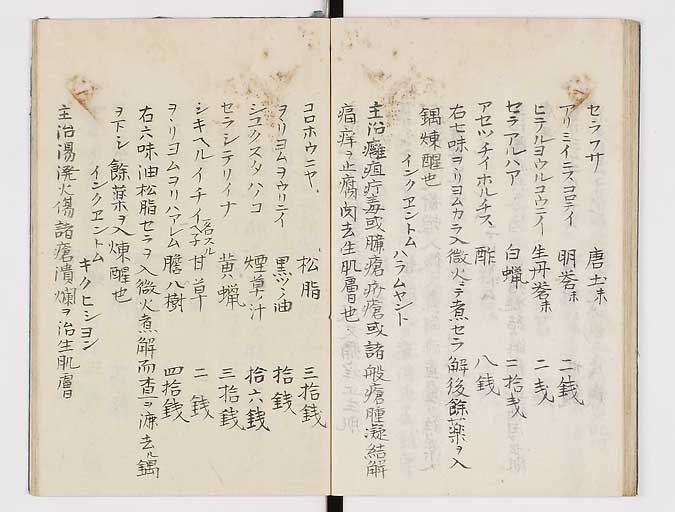 セラフサ 唐土末
アリミイニスコロニイ 明礬末 二銭
ヒテルヨウルコウニイ 生丹礬末 二戔
セラアルハア 白蝋 二拾戔
アセツチイホルチス 酢 八銭
右七味ヲヽリヨムカラ入微火ニテ煮セラ解後餘薬ヲ入
鍋煉醒也
インクヱントム ハラムヤント
主治癰疽疔毒或臁瘡疥瘡或諸般瘡腫凝結解
痛痒ヲ止腐肉去生肌膚也
コロホウニヤ、 松脂 三拾銭
ヲヽリヨムヲウリニイ 黒ツシ油 拾銭
シユクスタハコ 煙草ノ汁 拾六銭
セラシテリイナ 黄蝋 三拾銭
シキヘルイチイ 甘草 二銭
ヲヽリヨムヲリハアレム 膽八樹 四拾銭
右六味油松脂セラヲ入微火煮解而査ヲ漉去ル鍋
ヲ下シ餘薬ヲ入煉醒也
インクヱントム キクヒシヨン
主治湯溌火傷諸瘡潰爛ヲ治生肌膚